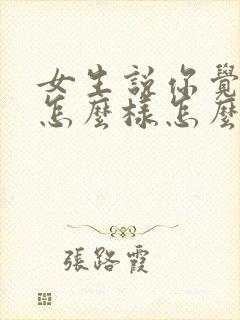 女生說你覺
怎麼樣怎麼
張路霞